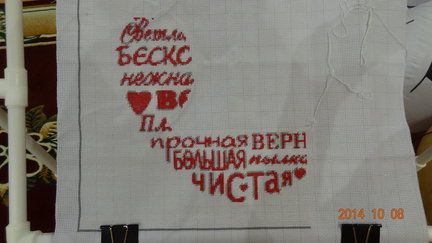 Светла
БЕСКО
нежна
ВЕ
Пл
прочная ВЕРН
БОЛЬШАЯ пылка
чистая
2014 10 08